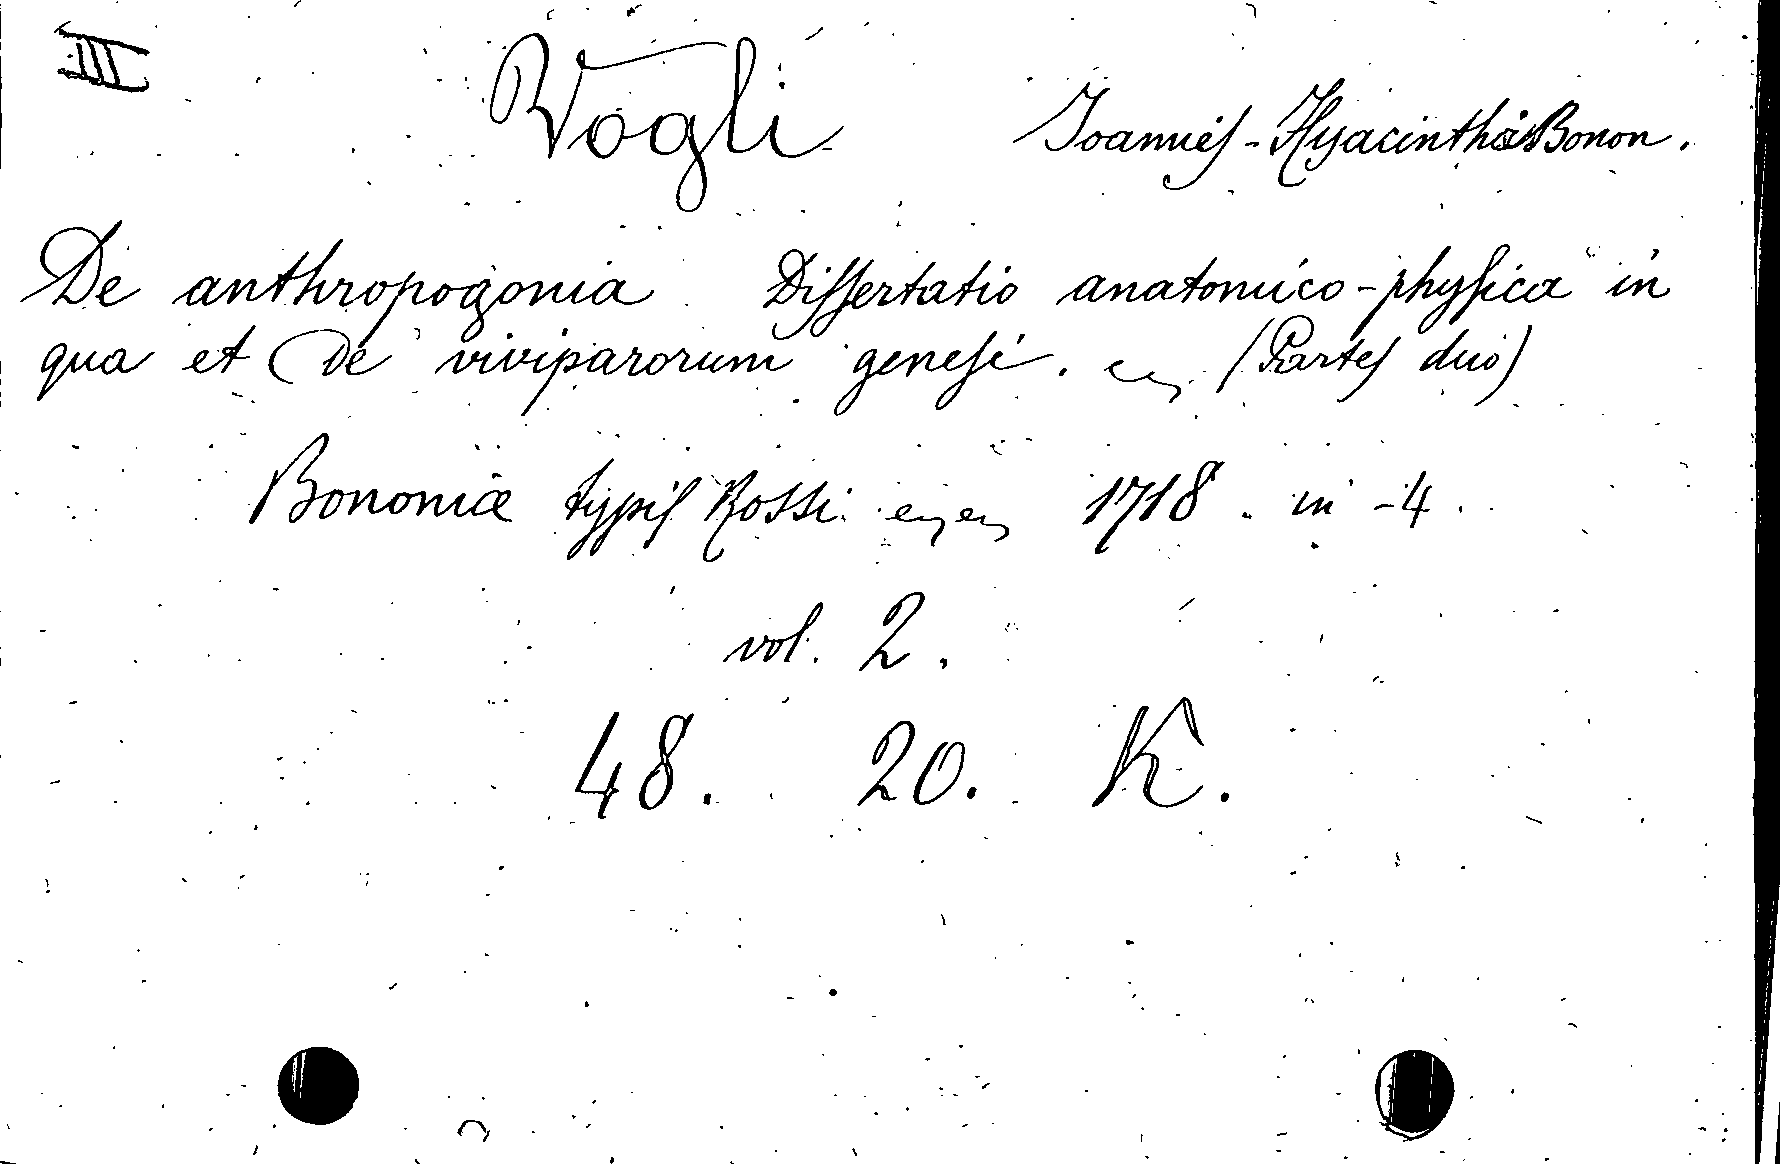 III
Vogli Joannes-Hyacinthus Bonon.
De anthropogonia Dissertatio anatomico-physica in
qua et de viviparorum genesi. (Partes duo)
Bononiæ typis Rossi 1718. in -4.
vol. 2.
48. 20. K.